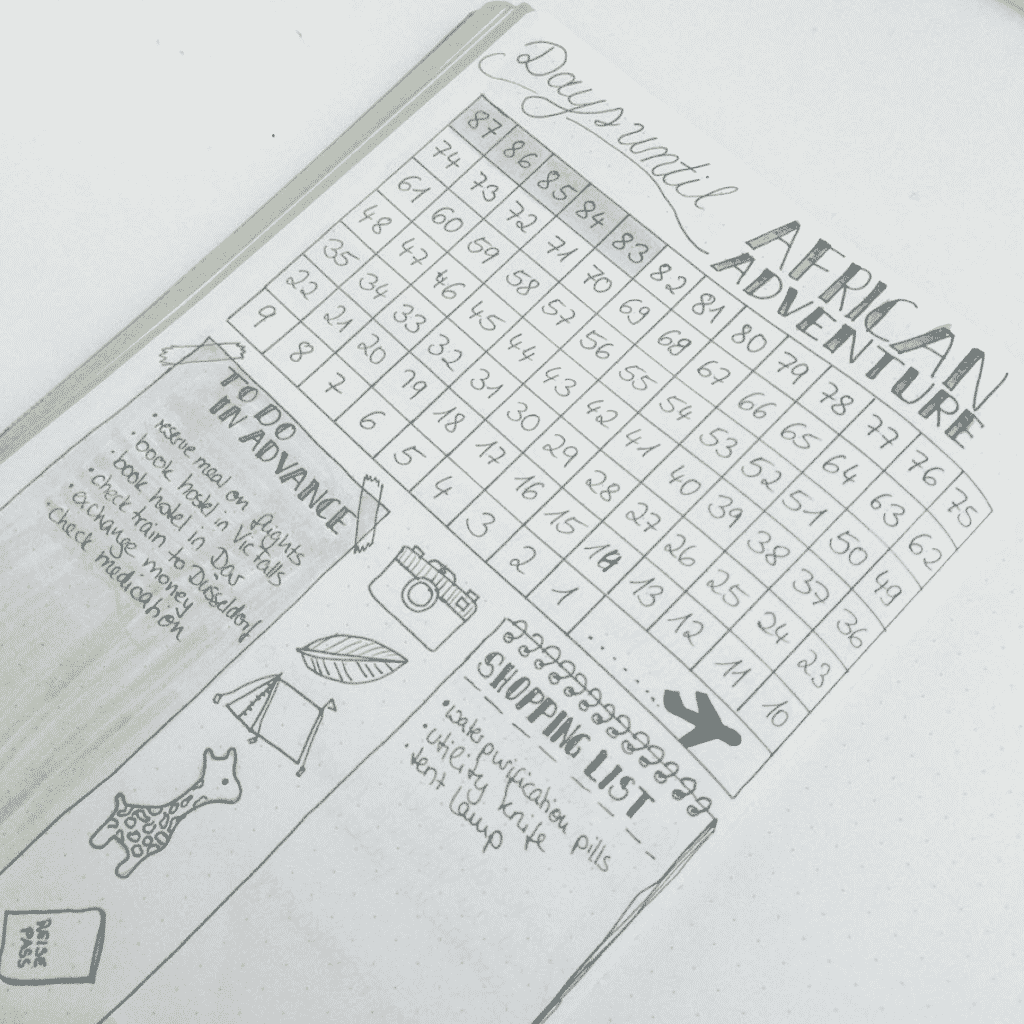 Days until
AFRICAN
ADVENTURE
87 86 85 84 83 82 81 80 79 78 77 76 75
74 73 72 71 70 69 68 67 66 65 64 63 62
61 60 59 58 57 56 55 54 53 52 51 50 49
48 47 46 45 44 43 42 41 40 39 38 37 36
35 34 33 32 31 30 29 28 27 26 25 24 23
22 21 20 19 18 17 16 15 14 13 12 11 10
9 8 7 6 5 4 3 2 1
TO DO
IN ADVANCE
• reserve meal on flights
• book hostel in Vic Falls
• book hotel in Dar
• check train to Düsseldorf
• exchange money
• check medication
SHOPPING LIST
• water purification pills
• utility knife
• tent lamp
REISE
PASS